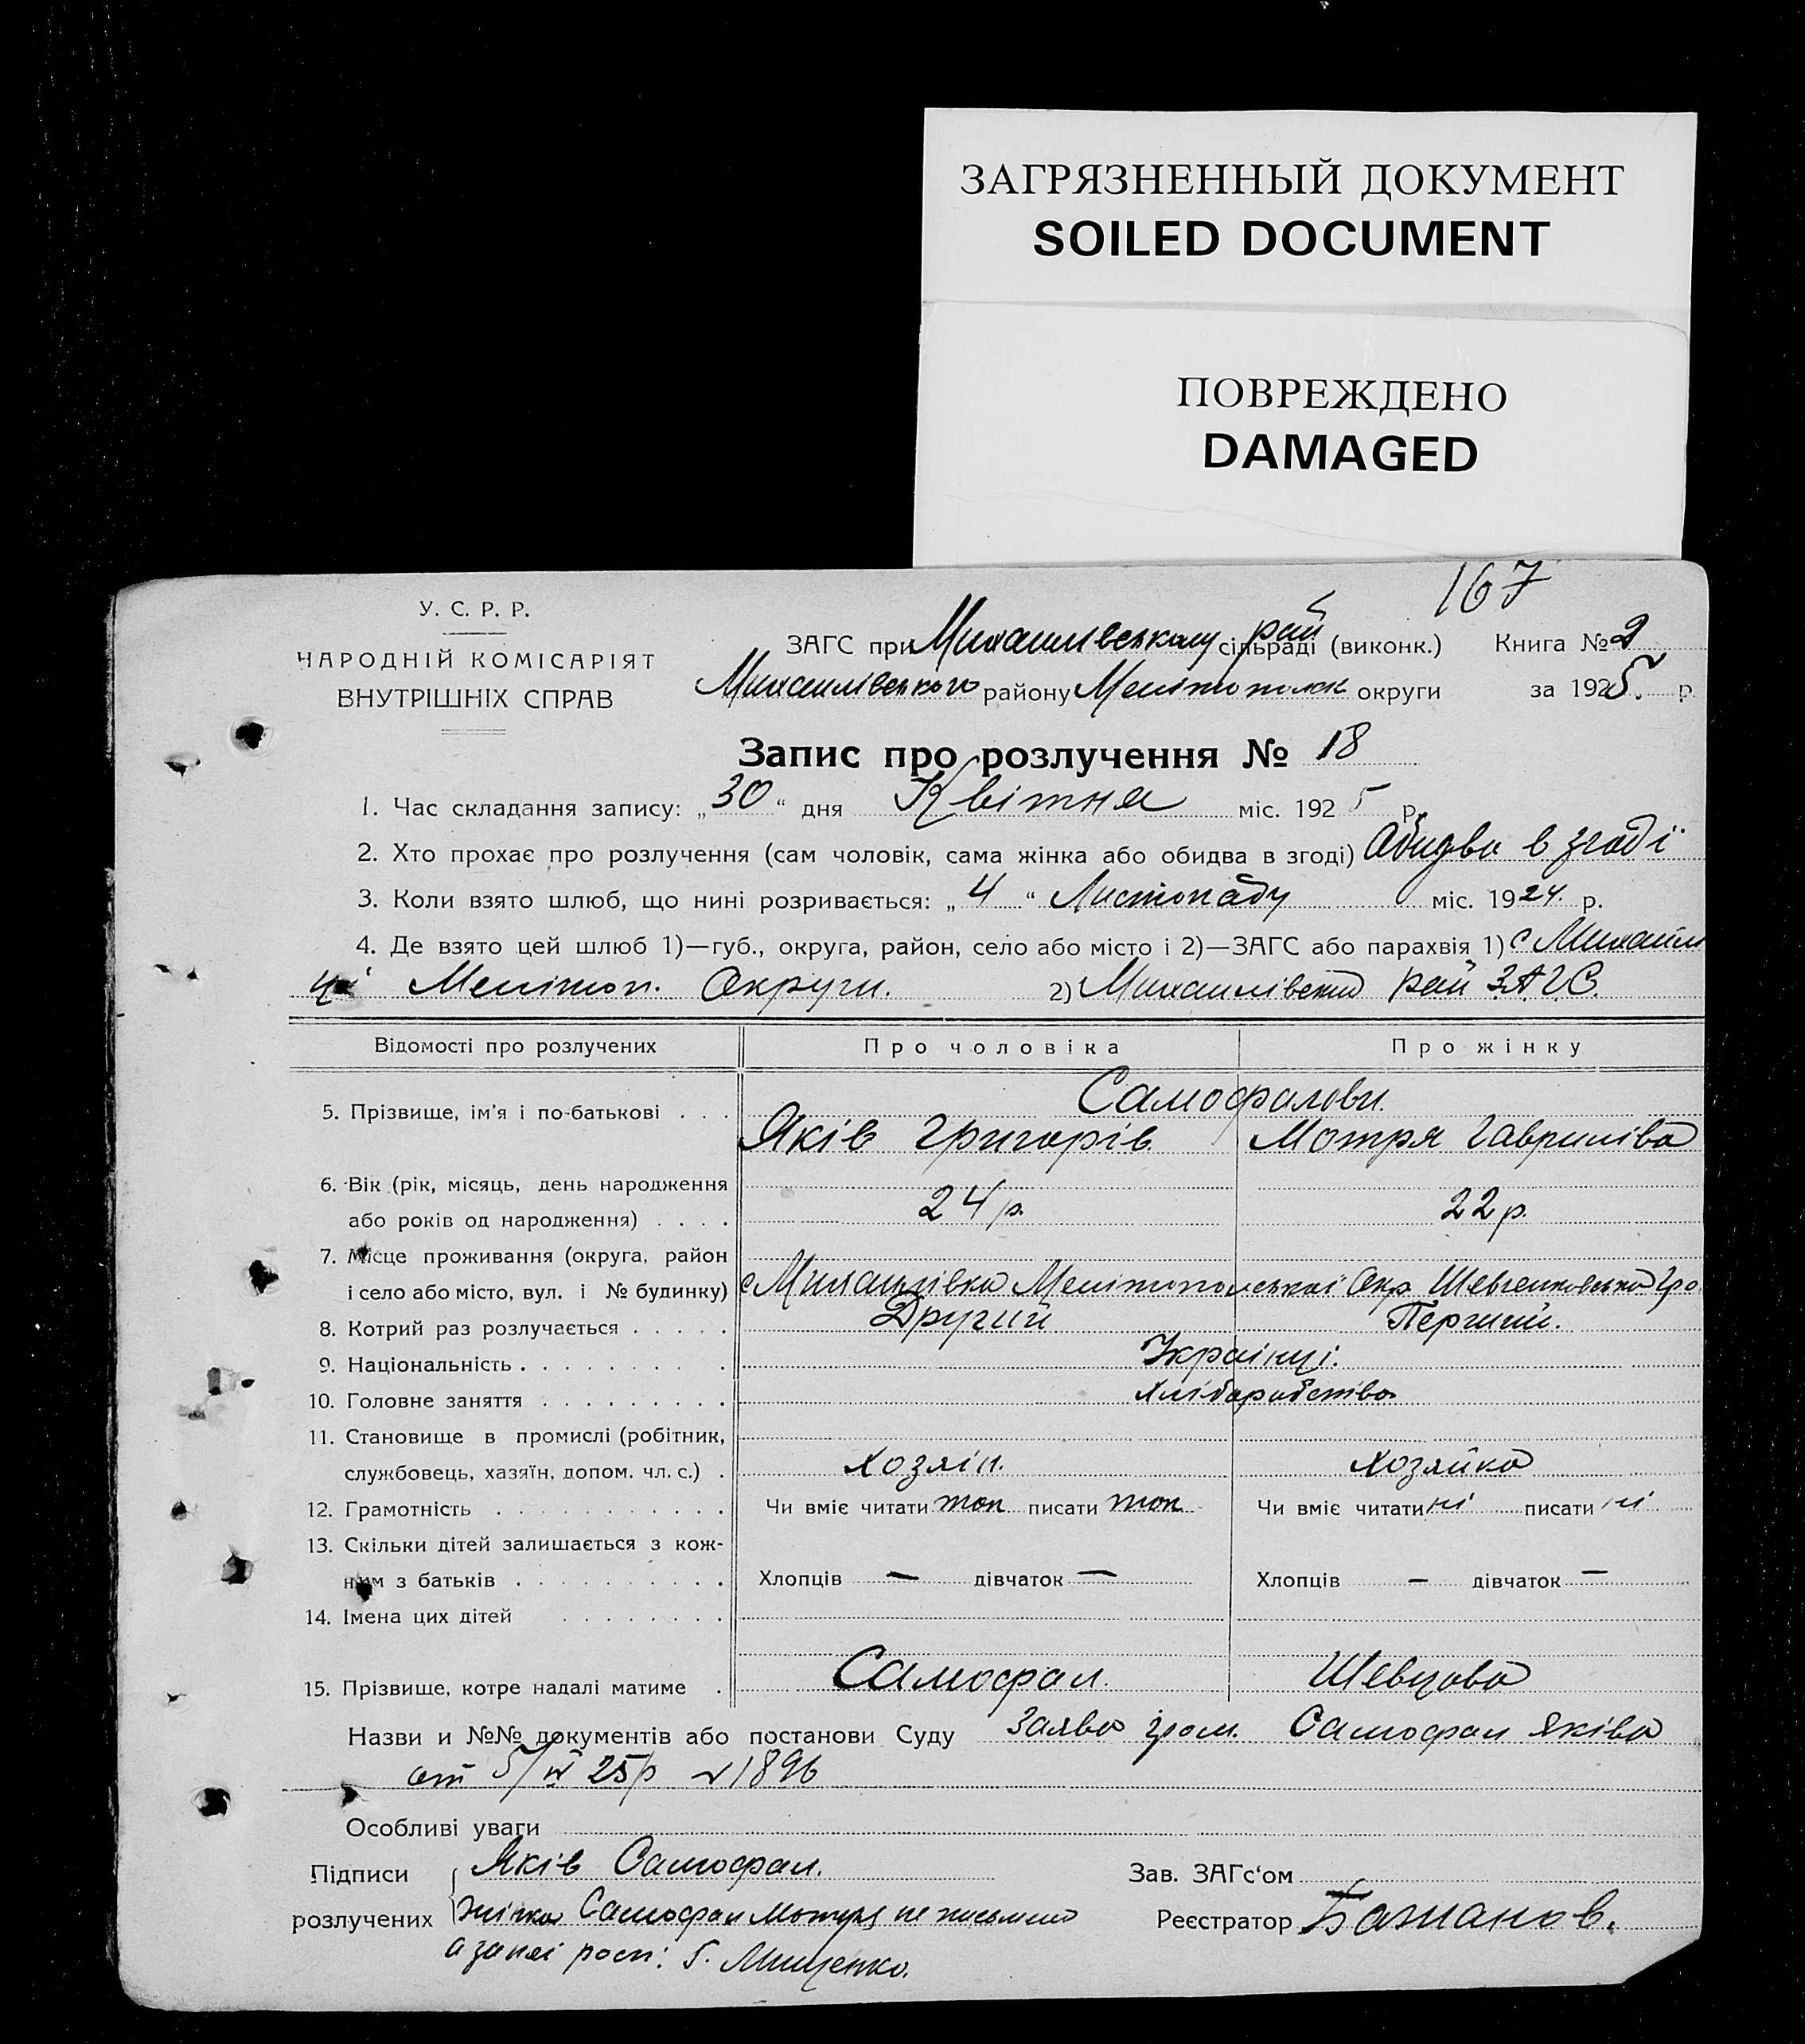 ЗАГРЯЗНЕННЫЙ ДОКУМЕНТ
SOILED DOCUMENT
ПОВРЕЖДЕНО
DAMAGED
167
У. С. Р. Р.
НАРОДНІЙ КОМІСАРІЯТ
ВНУТРІШНІХ СПРАВ
ЗАГС при Михайлівському сільраді рай (виконк.) Книга № 2
Михайлівського району Мелітопольк округи за 1925. р.
Запис про розлучення № 18
1. Час складання запису: „30“ дня Квітня міс. 1925 р.
2. Хто прохає про розлучення (сам чоловік, сама жінка або обидва в згоді) Обидва в згоді
3. Коли взято шлюб, що нині розривається: „4“ Листопаду міс. 1924. р.
4. Де взято цей шлюб 1)—губ., округа, район, село або місто і 2)—ЗАГС або парахвія 1) с Михайлів
ці Мелітоп. Округи. 2) Михайлівский рай ЗАГС.
Відомості про розлучених Про чоловіка Про жінку
Самофалови.
5. Прізвище, ім'я і по-батькові . . .
Яків Григорів. Мотря Гаврилівa
6. Вік (рік, місяць, день народження
або років од народження) . . . . 24 р. 22 р.
7. Місце проживання (округа, район
і село або місто, вул. і № будинку) с Михайлівка Мелітопольської Окр. Шевченковська
8. Котрий раз розлучається . . . . . Другий Перший.
9. Національність . . . . . . . . . Українці.
10. Головне заняття . . . . . . . . . Хліборобство
11. Становище в промислі (робітник,
службовець, хазяїн, допом. чл. с.) . Хозяін. Хозяйка
12. Грамотність . . . . . . . . . . . Чи вміє читати так писати так Чи вміє читати ні писати ні
13. Скільки дітей залишається з кож-
ним з батьків . . . . . . . . . . Хлопців — дівчаток — Хлопців — дівчаток —
14. Імена цих дітей . . . . . . . .
15. Прізвище, котре надалі матиме . Самофал. Шевцова
Назви и №№ документів або постанови Суду Заява гром. Самофал Яківа
от 5/IV 25 р № 1896
Особливі уваги
Підписи Яків Самофал. Зав. ЗАГс‘ом
розлучених Жінка Самофал Мотря не письмена Реєстратор Бажанов.
а за неі росп: Г. Мищенко.